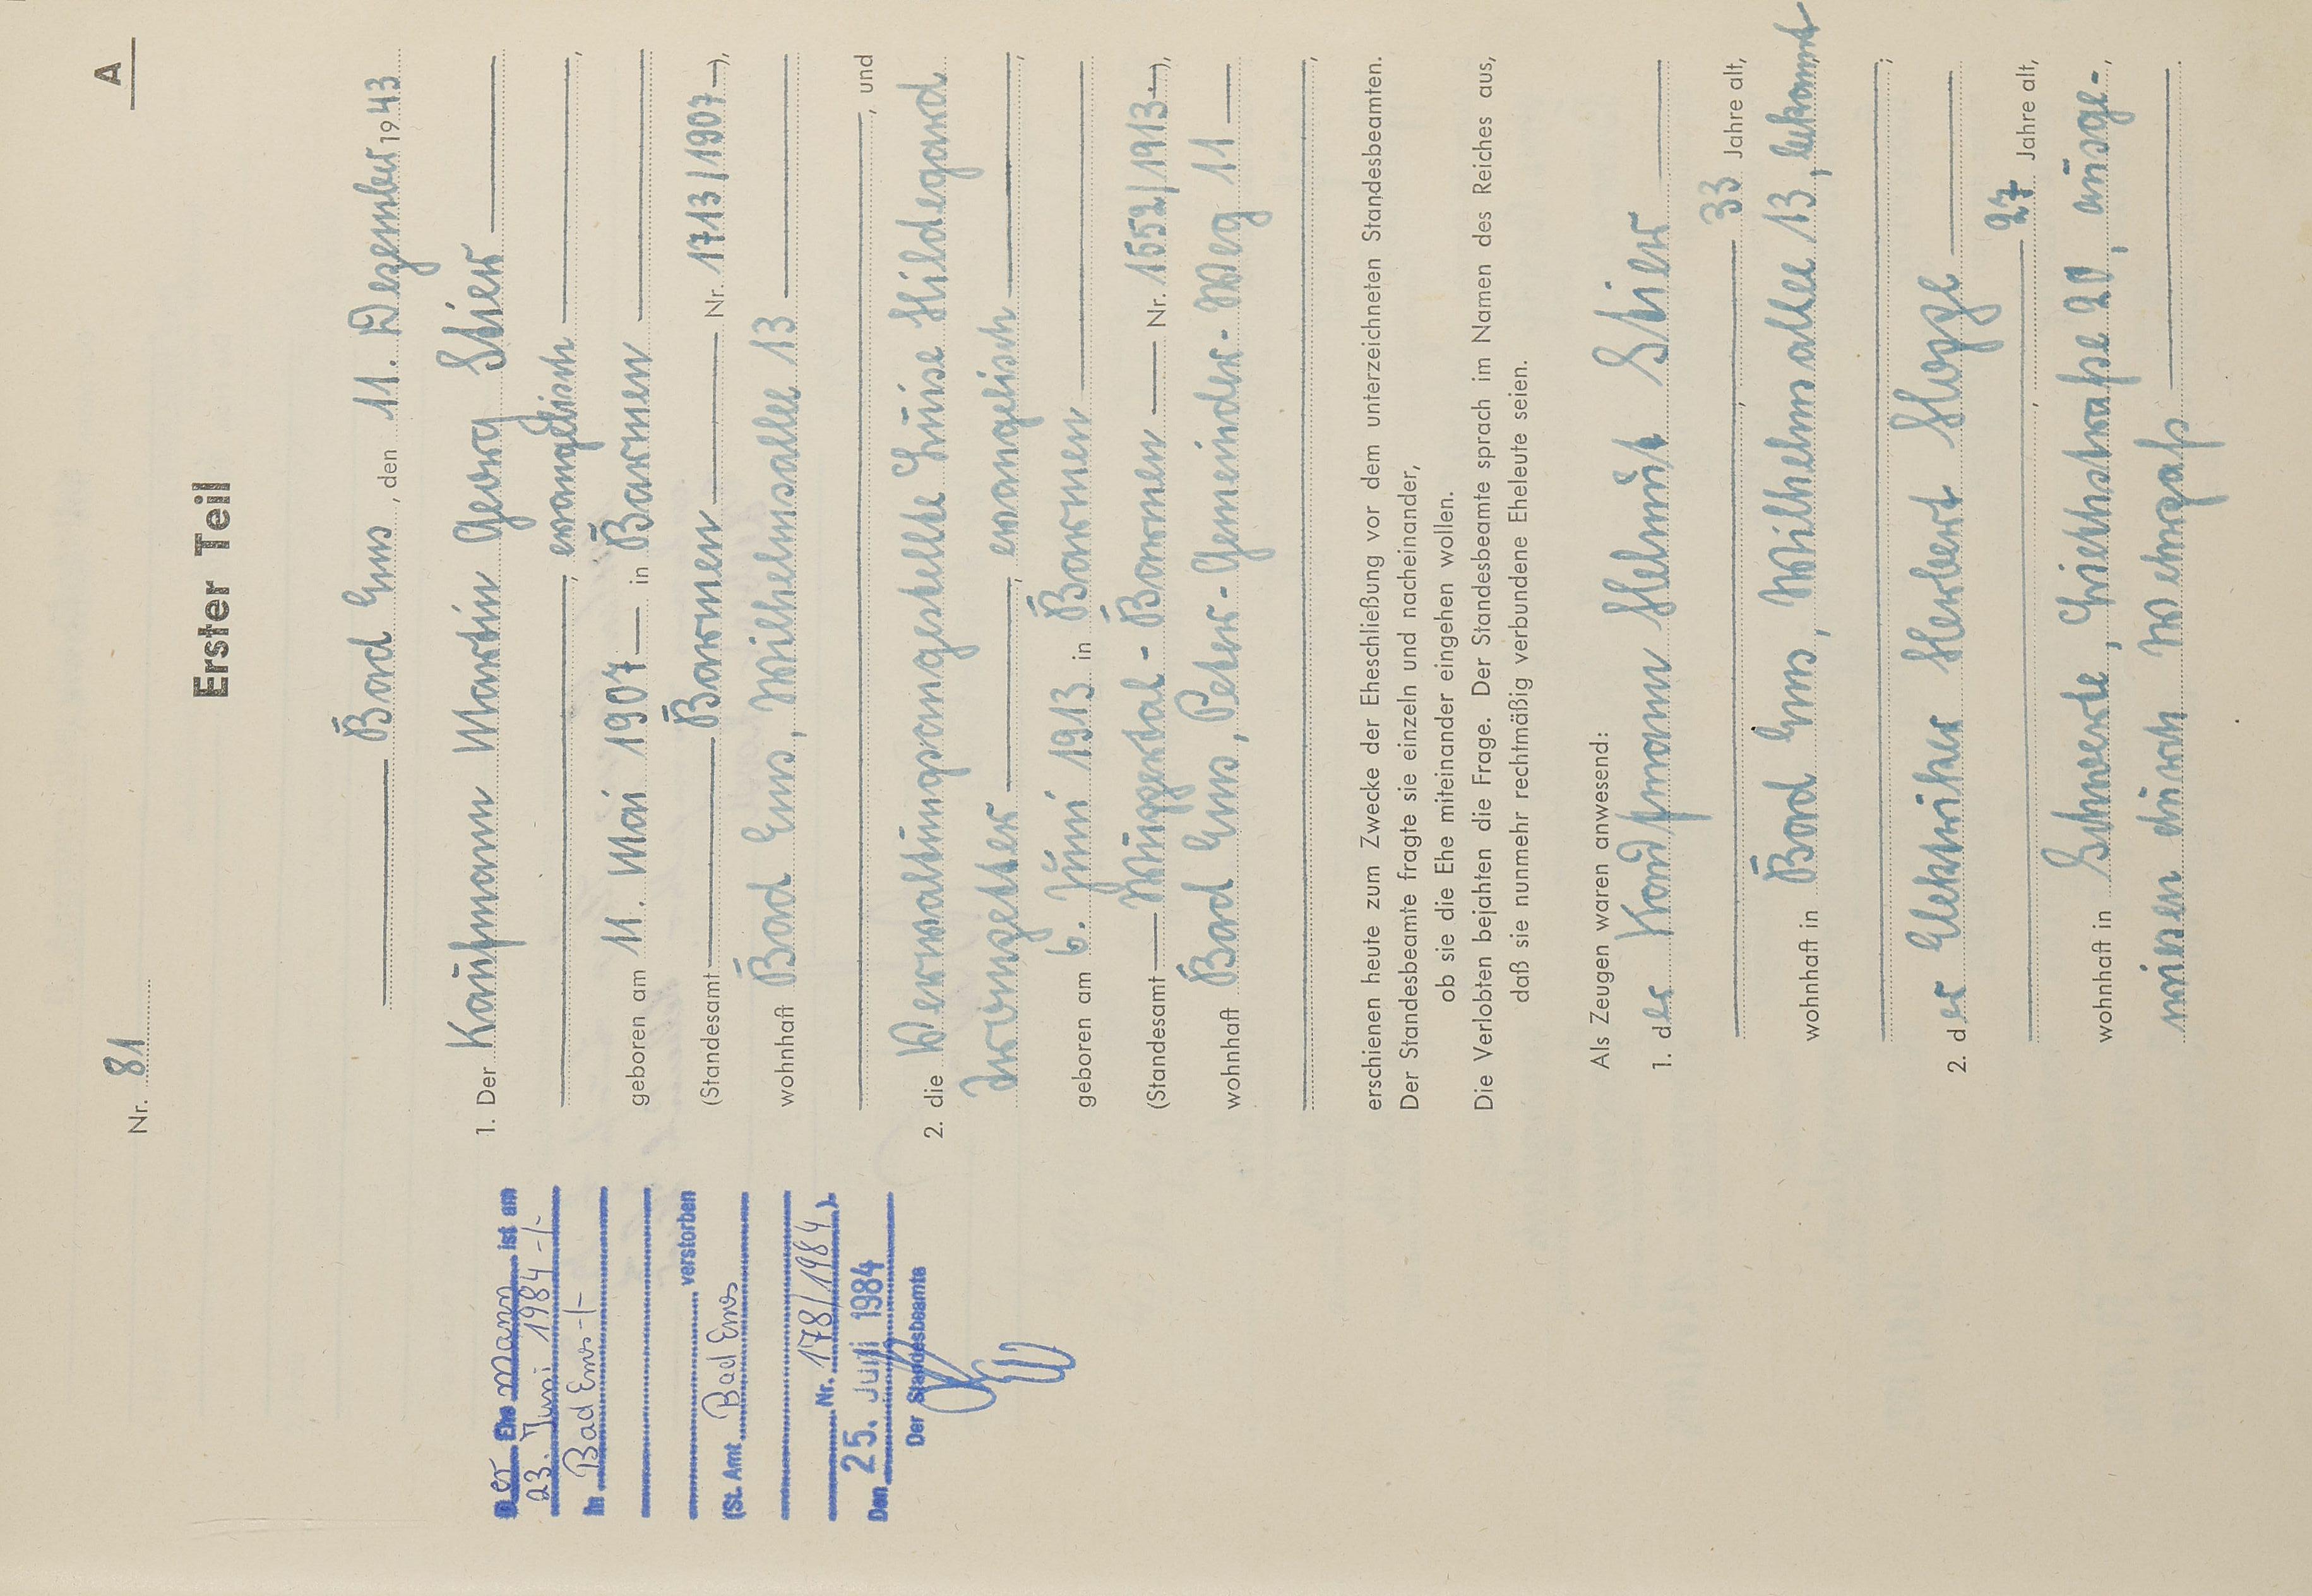 A
Nr. 81
Erster Teil
Bad Ems, den 11. Dezember 1943
1. Der Kaufmann Martin Georg Stier
, evangelisch,
geboren am 11. Mai 1907 in Barmen
(Standesamt Barmen Nr. 1713/1907),
wohnhaft Bad Ems, Wilhelmsallee 13
, und
2. die Verwaltungsangestellte Luise Hildegard
, evangelisch,
geboren am 6. Juni 1913 in Barmen
(Standesamt Wuppertal-Barmen Nr. 1552/1913),
wohnhaft Bad Ems, Peter-Gemeinder-Weg 11
,
erschienen heute zum Zwecke der Eheschließung vor dem unterzeichneten Standesbeamten.
Der Standesbeamte fragte sie einzeln und nacheinander,
ob sie die Ehe miteinander eingehen wollen.
Die Verlobten bejahten die Frage. Der Standesbeamte sprach im Namen des Reiches aus,
daß sie nunmehr rechtmäßig verbundene Eheleute seien.
Als Zeugen waren anwesend:
1. der Kaufmann Helmut Stier
, 33 Jahre alt,
wohnhaft in Bad Ems, Wilhelmsallee 13, bekannt
;
2. der Elektriker Herbert
, 27 Jahre alt,
wohnhaft in Schwerte, 20, ausge-,
wiesen durch Wehrpaß.
Der Ehemann ist am
23. Juni 1984 -/-
in Bad Ems -/-
verstorben
(St. Amt Bad Ems
Nr. 178/1984).
Den 25. Juni 1984
Der Standesbeamte